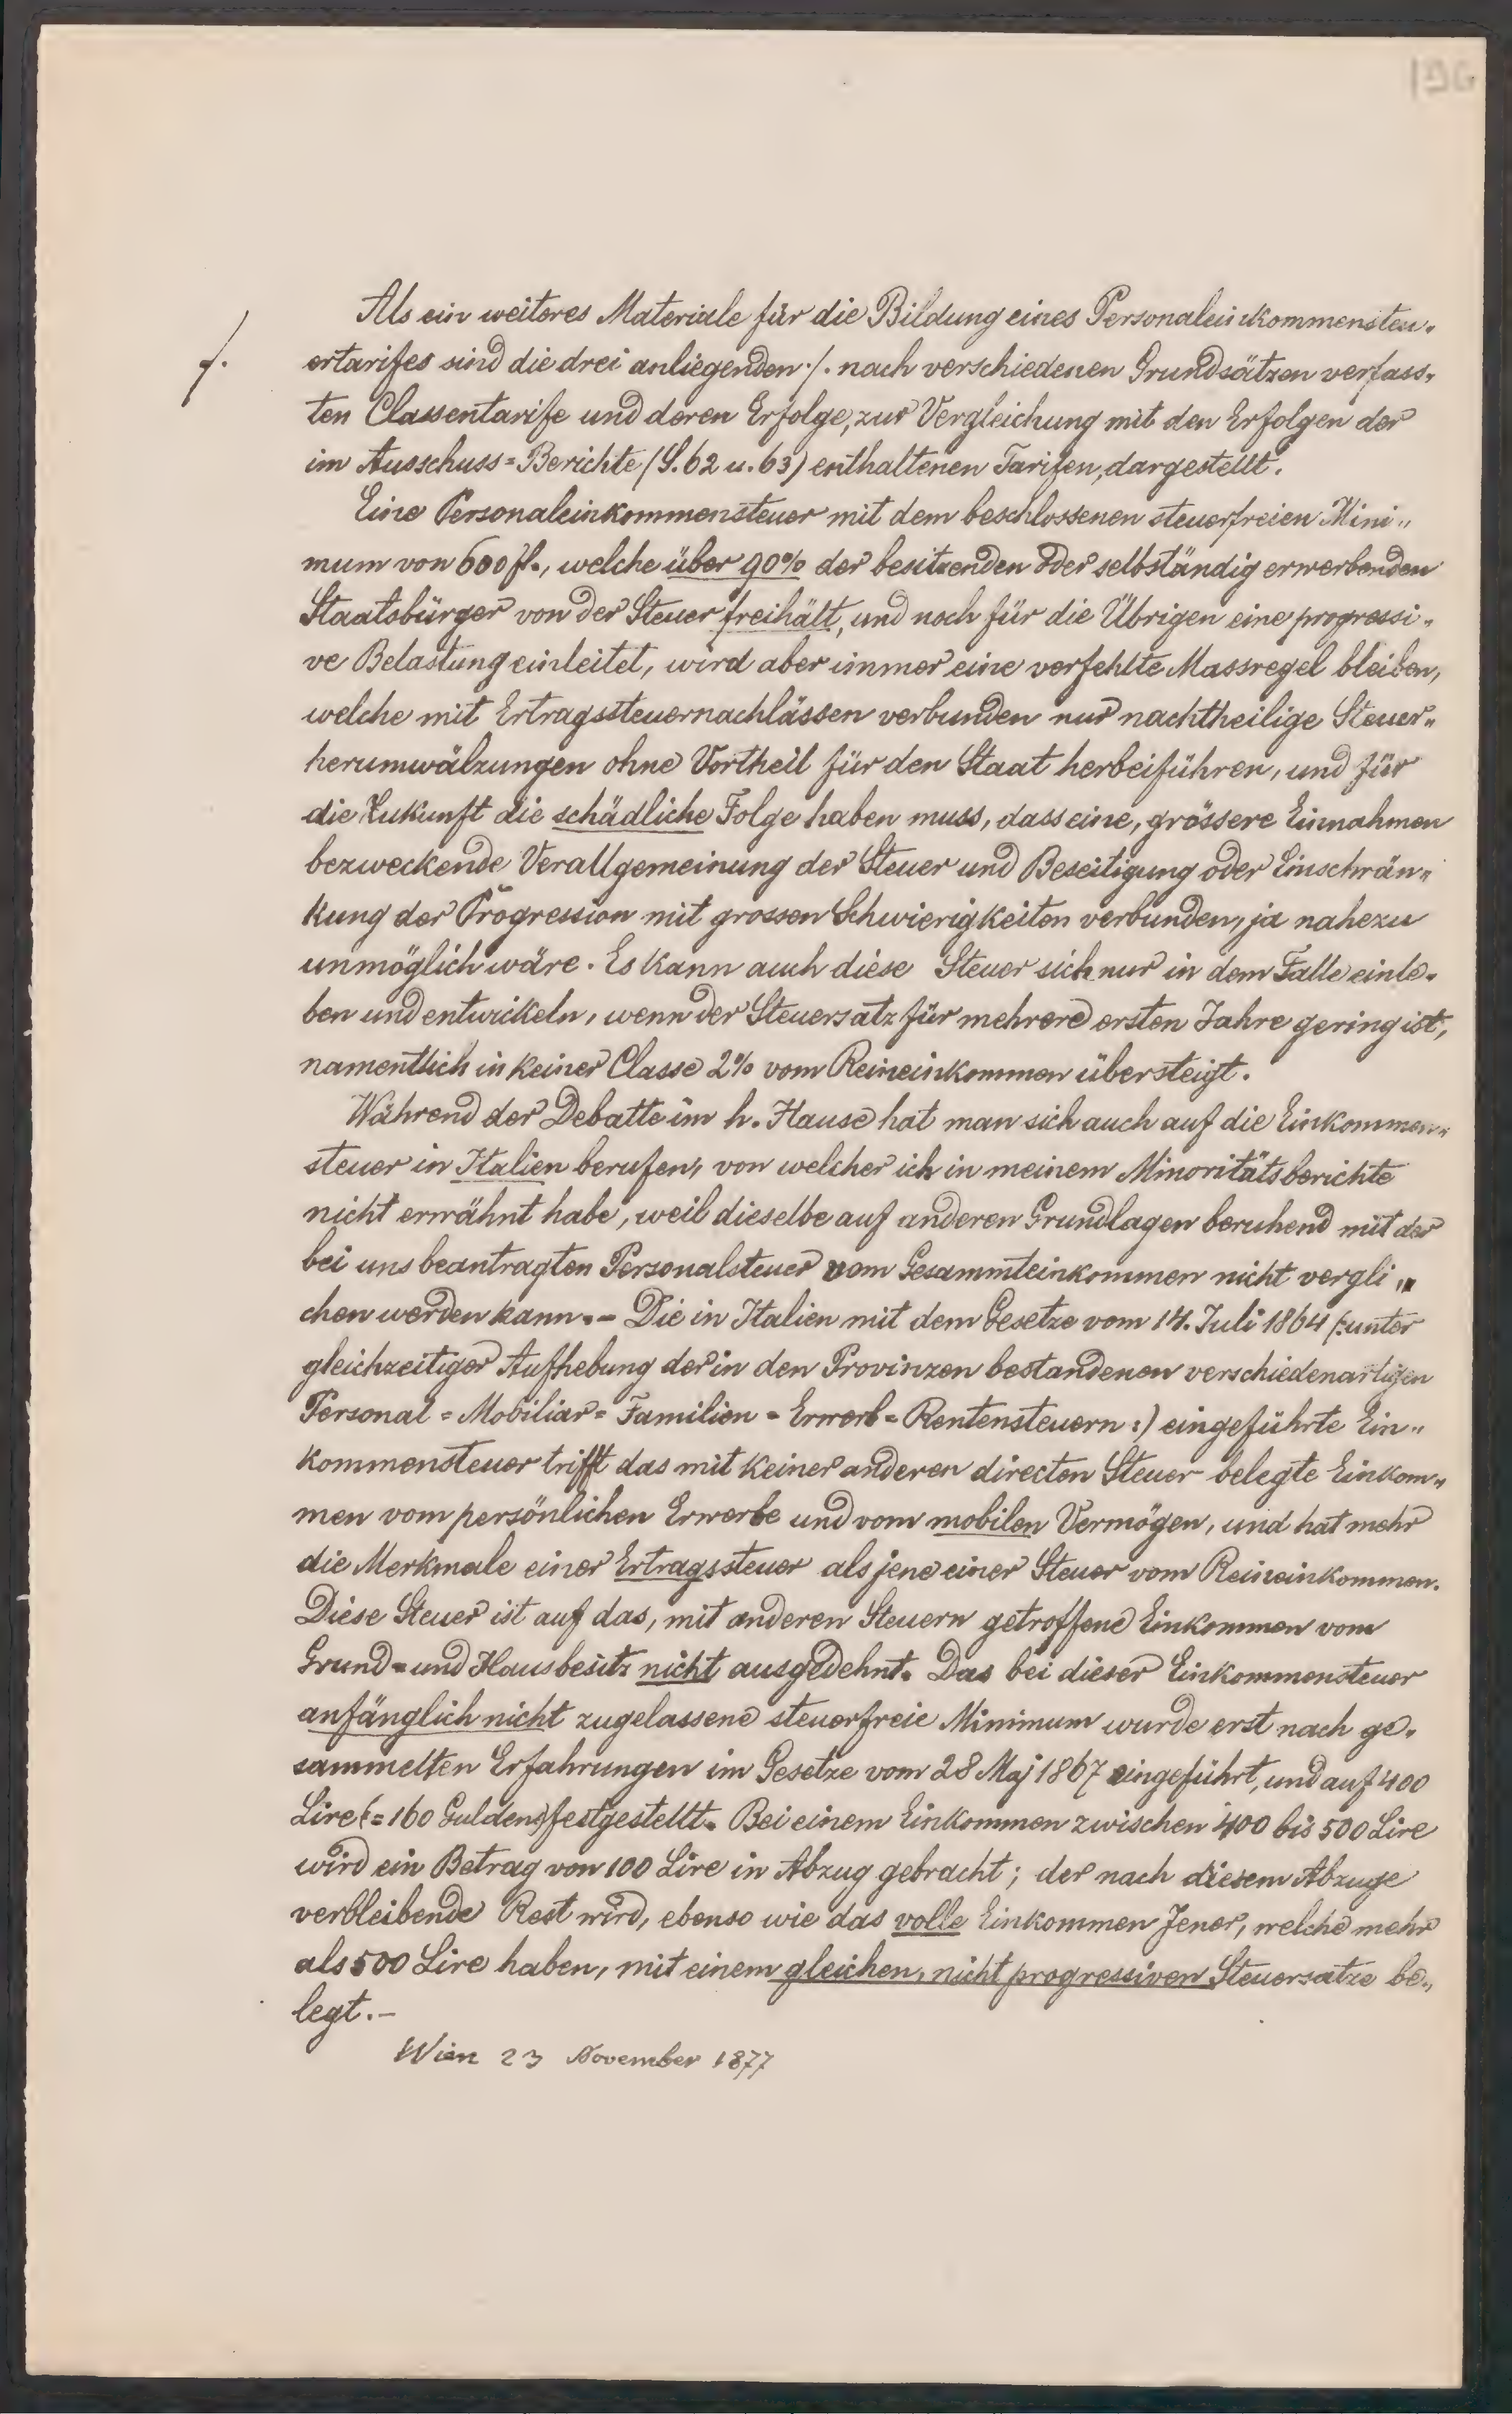 196
Als ein weiteres Materiale für die Bildung eines Personaleinkommensteu„
./.
ertarifes sind die drei anliegenden ./. nach verschiedenen Grundsätzen verfass„
ten Classentarife und deren Erfolge, zur Vergleichung mit den Erfolgen der
im Ausschuss=Berichte (S. 62 u. 63) enthaltenen Tarifen, dargestellt.
Eine Personaleinkommensteuer mit dem beschlossenen steuerfreien Mini„
mum von 600 fl., welche über 90% der besitzenden oder selbständig erwerbenden
Staatsbürger von der Steuer freihält, und noch für die Übrigen eine progressi„
ve Belastung einleitet, wird aber immer eine verfehlte Massregel bleiben,
welche mit Ertragssteuernachlässen verbunden nur nachtheilige Steuer„
herumwälzungen ohne Vortheil für den Staat herbeiführen, und für
die Zukunft die schädliche Folge haben muss, dass eine, grössere Einnahmen
bezweckende Verallgemeinung der Steuer und Beseitigung oder Einschrän„
kung der Progression mit grossen Schwierigkeiten verbunden, ja nahezu
unmöglich wäre. Es kann auch diese Steuer sich nur in dem Falle einle„
ben und entwickeln, wenn der Steuersatz für mehrere ersten Jahre gering ist,
namentlich in keiner Classe 2% vom Reineinkommen übersteigt.
Während der Debatte im h. Hause hat man sich auch auf die Einkommen„
steuer in Italien berufen, von welcher ich in meinem Minoritätsberichte
nicht erwähnt habe, weil dieselbe auf anderen Grundlagen beruhend mit der
bei uns beantragten Personalsteuer vom Gesammteinkommen nicht vergli„
chen werden kann. – Die in Italien mit dem Gesetze vom 14. Juli 1864 (:unter
gleichzeitiger Aufhebung der in den Provinzen bestandenen verschiedenartigen
Personal= Mobiliar= Familien= Erwerb= Rentensteuern:) eingeführte Ein„
kommensteuer trifft das mit keiner anderen directen Steuer belegte Einkom„
men vom persönlichen Erwerbe und vom mobilen Vermögen, und hat mehr
die Merkmale einer Ertragssteuer als jene einer Steuer vom Reineinkommen.
Diese Steuer ist auf das, mit anderen Steuern getroffene Einkommen vom
Grund= und Hausbesitz nicht ausgedehnt. Das bei dieser Einkommensteuer
anfänglich nicht zugelassene steuerfreie Minimum wurde erst nach ge„
sammelten Erfahrungen im Gesetze vom 28 Maj 1867 eingeführt, und auf 400
Lire (= 160 Gulden) festgestellt. Bei einem Einkommen zwischen 400 bis 500 Lire
wird ein Betrag von 100 Lire in Abzug gebracht; der nach diesem Abzuge
verbleibende Rest wird, ebenso wie das volle Einkommen Jener, welche mehr
als 500 Lire haben, mit einem gleichen, nicht progressiven Steuersatze be„
legt. –
Wien 23 November 1877